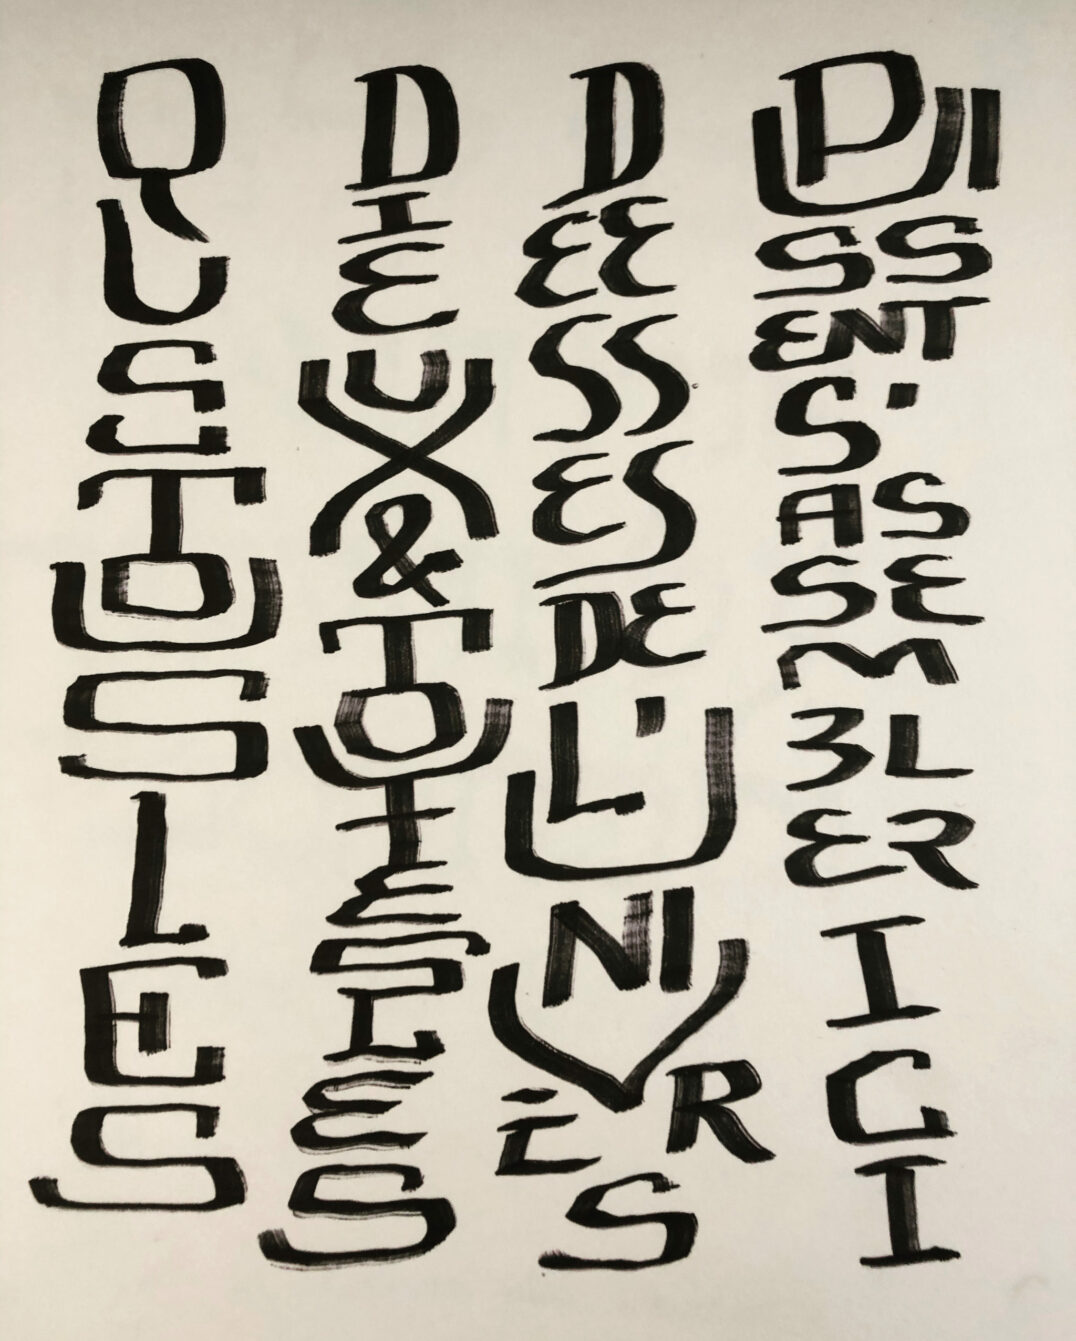 QUE TOUS LES
DIEUX & TOUTES LES
DEESSES DE L'UNIVERS
PUISSENT S'ASSEMBLER ICI